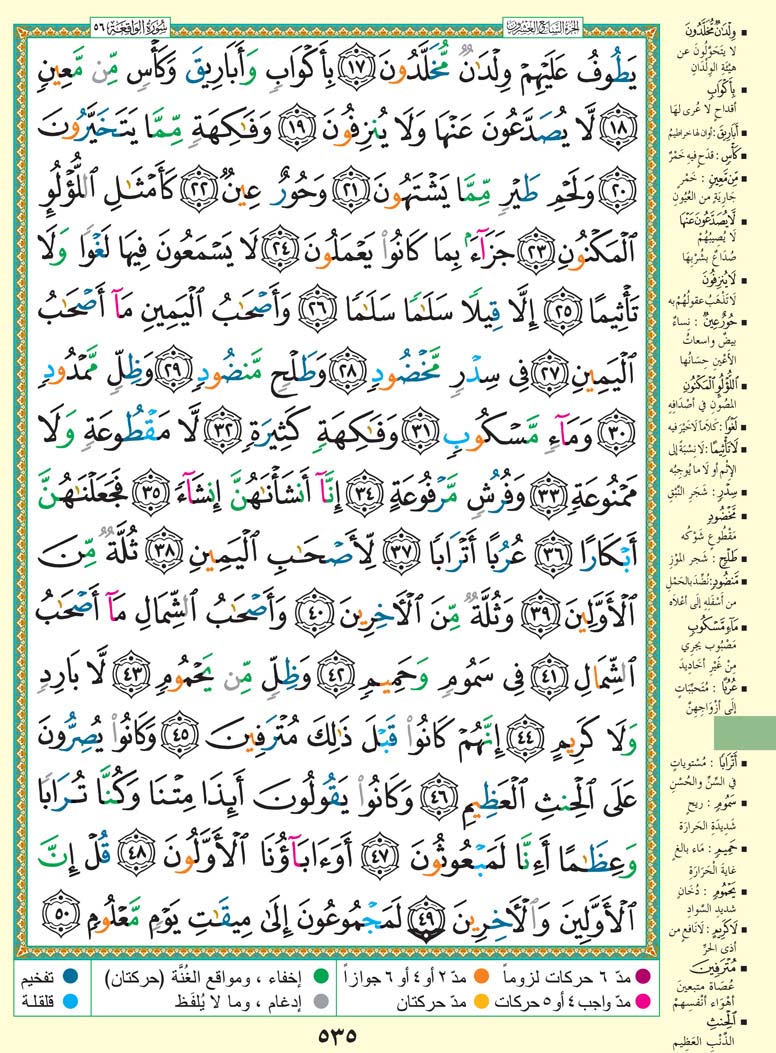 سُورَةُ الوَاقِعَةِ ٥٦
الجزء السابع والعشرون
يَطُوفُ عَلَيْهِمْ وِلْدَٰنٌ مُّخَلَّدُونَ ١٧ بِأَكْوَابٍ وَأَبَارِيقَ وَكَأْسٍ مِّن مَّعِينٍ
١٨ لَّا يُصَدَّعُونَ عَنْهَا وَلَا يُنزِفُونَ ١٩ وَفَٰكِهَةٍ مِّمَّا يَتَخَيَّرُونَ
٢٠ وَلَحْمِ طَيْرٍ مِّمَّا يَشْتَهُونَ ٢١ وَحُورٌ عِينٌ ٢٢ كَأَمْثَٰلِ ٱللُّؤْلُوِٕ
ٱلْمَكْنُونِ ٢٣ جَزَآءًۢ بِمَا كَانُوا۟ يَعْمَلُونَ ٢٤ لَا يَسْمَعُونَ فِيهَا لَغْوًا وَلَا
تَأْثِيمًا ٢٥ إِلَّا قِيلًا سَلَٰمًا سَلَٰمًا ٢٦ وَأَصْحَٰبُ ٱلْيَمِينِ مَآ أَصْحَٰبُ
ٱلْيَمِينِ ٢٧ فِى سِدْرٍ مَّخْضُودٍ ٢٨ وَطَلْحٍ مَّنضُودٍ ٢٩ وَظِلٍّ مَّمْدُودٍ
٣٠ وَمَآءٍ مَّسْكُوبٍ ٣١ وَفَٰكِهَةٍ كَثِيرَةٍ ٣٢ لَّا مَقْطُوعَةٍ وَلَا
مَمْنُوعَةٍ ٣٣ وَفُرُشٍ مَّرْفُوعَةٍ ٣٤ إِنَّآ أَنشَأْنَٰهُنَّ إِنشَآءً ٣٥ فَجَعَلْنَٰهُنَّ
أَبْكَارًا ٣٦ عُرُبًا أَتْرَابًا ٣٧ لِّأَصْحَٰبِ ٱلْيَمِينِ ٣٨ ثُلَّةٌ مِّنَ
ٱلْأَوَّلِينَ ٣٩ وَثُلَّةٌ مِّنَ ٱلْءَاخِرِينَ ٤٠ وَأَصْحَٰبُ ٱلشِّمَالِ مَآ أَصْحَٰبُ
ٱلشِّمَالِ ٤١ فِى سَمُومٍ وَحَمِيمٍ ٤٢ وَظِلٍّ مِّن يَحْمُومٍ ٤٣ لَّا بَارِدٍ
وَلَا كَرِيمٍ ٤٤ إِنَّهُمْ كَانُوا۟ قَبْلَ ذَٰلِكَ مُتْرَفِينَ ٤٥ وَكَانُوا۟ يُصِرُّونَ
عَلَى ٱلْحِنثِ ٱلْعَظِيمِ ٤٦ وَكَانُوا۟ يَقُولُونَ أَئِذَا مِتْنَا وَكُنَّا تُرَابًا
وَعِظَٰمًا أَءِنَّا لَمَبْعُوثُونَ ٤٧ أَوَءَابَآؤُنَا ٱلْأَوَّلُونَ ٤٨ قُلْ إِنَّ
ٱلْأَوَّلِينَ وَٱلْءَاخِرِينَ ٤٩ لَمَجْمُوعُونَ إِلَىٰ مِيقَٰتِ يَوْمٍ مَّعْلُومٍ ٥٠
▪ وِلْدَانٌ مُّخَلَّدُونَ
لا يَتَحَوَّلُونَ عن
هيْئة الوِلْدَانِ
▪ بِأَكْوَابٍ
أقداحٍ لا عُرى لهَا
▪ أَبَارِيقَ: أوانٍ لها خراطيمُ
▪ كَأْسٍ: قدَحٍ فيهِ خَمْرٌ
▪ مِن مَّعِينٍ : خَمْرٍ
جَاريَةٍ من العُيُونِ
▪ لَّا يُصَدَّعُونَ عَنْهَا
لا يُصِيبُهُمْ
صُدَاعٌ بِشُرْبِهَا
▪ لَا يُنزِفُونَ
لا تَذْهَبُ عقولُهُمْ به
▪ حُورٌ عِينٌ : نساءٌ
بيضٌ واسعاتُ
الأعْينِ حِسَانُهَا
▪ اللُّؤْلُوِٕ الْمَكْنُونِ
المصُونِ في أصْدَافِهِ
▪ لَغْوًا: كَلاَماً لاَ خَيْرَ فيه
▪ لَا تَأْثِيمًا: لاَ نِسْبَةً إلى
الإثْمِ أو لَا ما يُوجِبُهُ
▪ سِدْرٍ : شَجَرِ النَّبْقِ
▪ مَّخْضُودٍ
مَقْطُوعٍ شَوْكُه
▪ طَلْحٍ : شَجَر الموْزِ
▪ مَّنضُودٍ: نُضِّدَ بالحَمْلِ
من أسْفَلِهِ إلى أعْلاَه
▪ مَآءٍ مَّسْكُوبٍ
مَصْبُوبٍ يجري
مِنْ غَيْرِ أخاديدَ
▪ عُرُبًا : مُتَحَبِّبَاتٍ
إلَى أزْوَاجِهِنَّ
▪ أَتْرَابًا : مُسْتَوِياتٍ
في السِّنِّ والحُسْنِ
▪ سَمُومٍ : ريحٍ
شَديدَةِ الحَرارَة
▪ حَمِيمٍ : مَاء بالغٍ
غايَةَ الحَرَارَة
▪ يَحْمُومٍ : دُخَانٍ
شديد السَّوادِ
▪ لَا كَرِيمٍ : لاَ نَافعٍ من
أذى الحَرِّ
▪ مُتْرَفِينَ
عُصَاةً متبعينَ
أهْوَاء أنْفُسِهِمْ
▪ الْحِنثِ
الذَّنْبِ العَظِيم
مدّ ٦ حركات لزوماً
مدّ ٢ أو ٤ أو ٦ جوازاً
إخفاء ، ومواقع الغُنَّة (حركتان)
تفخيم
مدّ واجب ٤ أو ٥ حركات
مدّ حركتان
إدغام ، وما لا يُلفَظ
قلقلة
٥٣٥